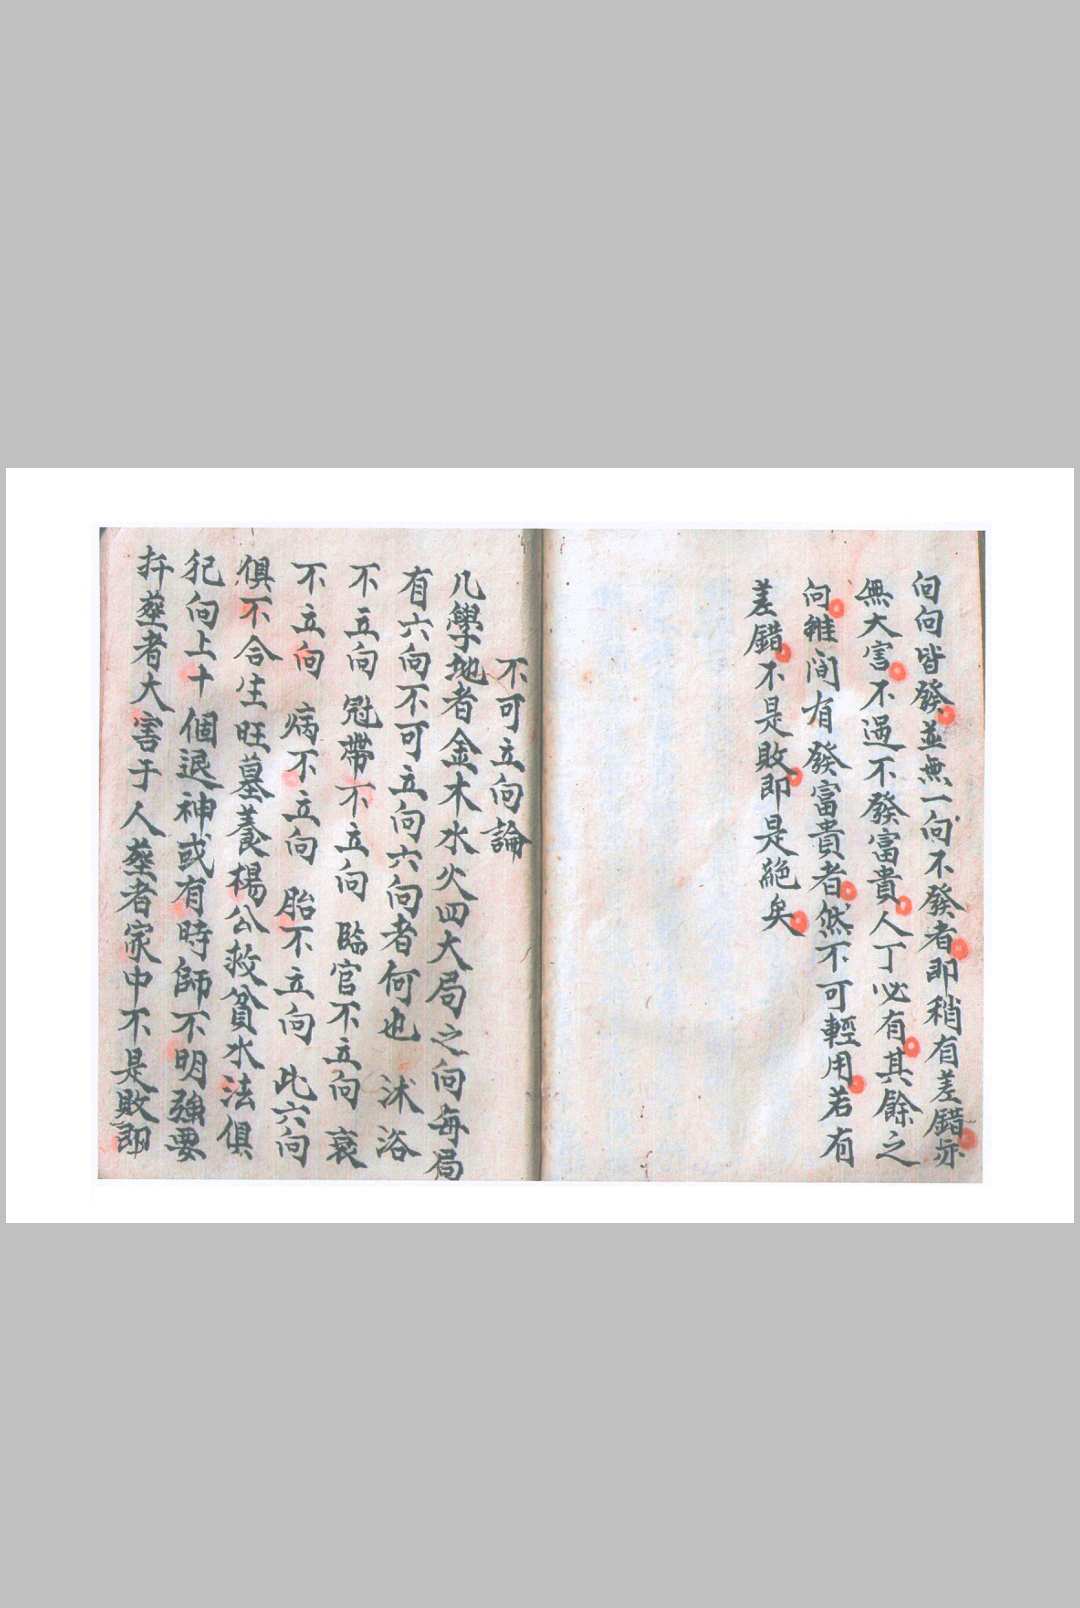 向向皆發並無一向不發者即稍有差錯亦
無大害不過不發富貴人丁必有其餘之
向雖间有發富貴者然不可輕用若有
差錯不是敗即是絕矣
不可立向論
凡學地者金木水火四大局之向每局
有六向不可立向六向者何也 沐浴
不立向 冠帶不立向 臨官不立向 衰
不立向 病不立向 胎不立向 此六向
俱不合生旺墓養楊公救貧水法俱
犯向上十個退神或有時師不明強要
扦塟者大害于人塟者家中不是敗即